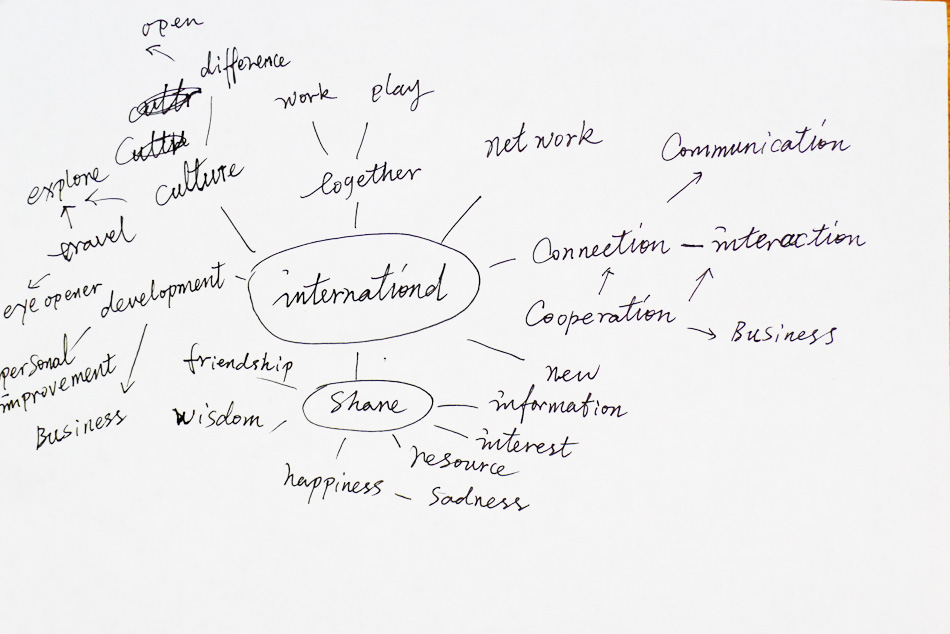 open
difference
work
play
network
Communication
culture
explore
together
travel
Connection – interaction
eye opener
development
international
Cooperation
Business
personal
improvement
friendship
new
information
Business
wisdom
Share
interest
resource
happiness – sadness